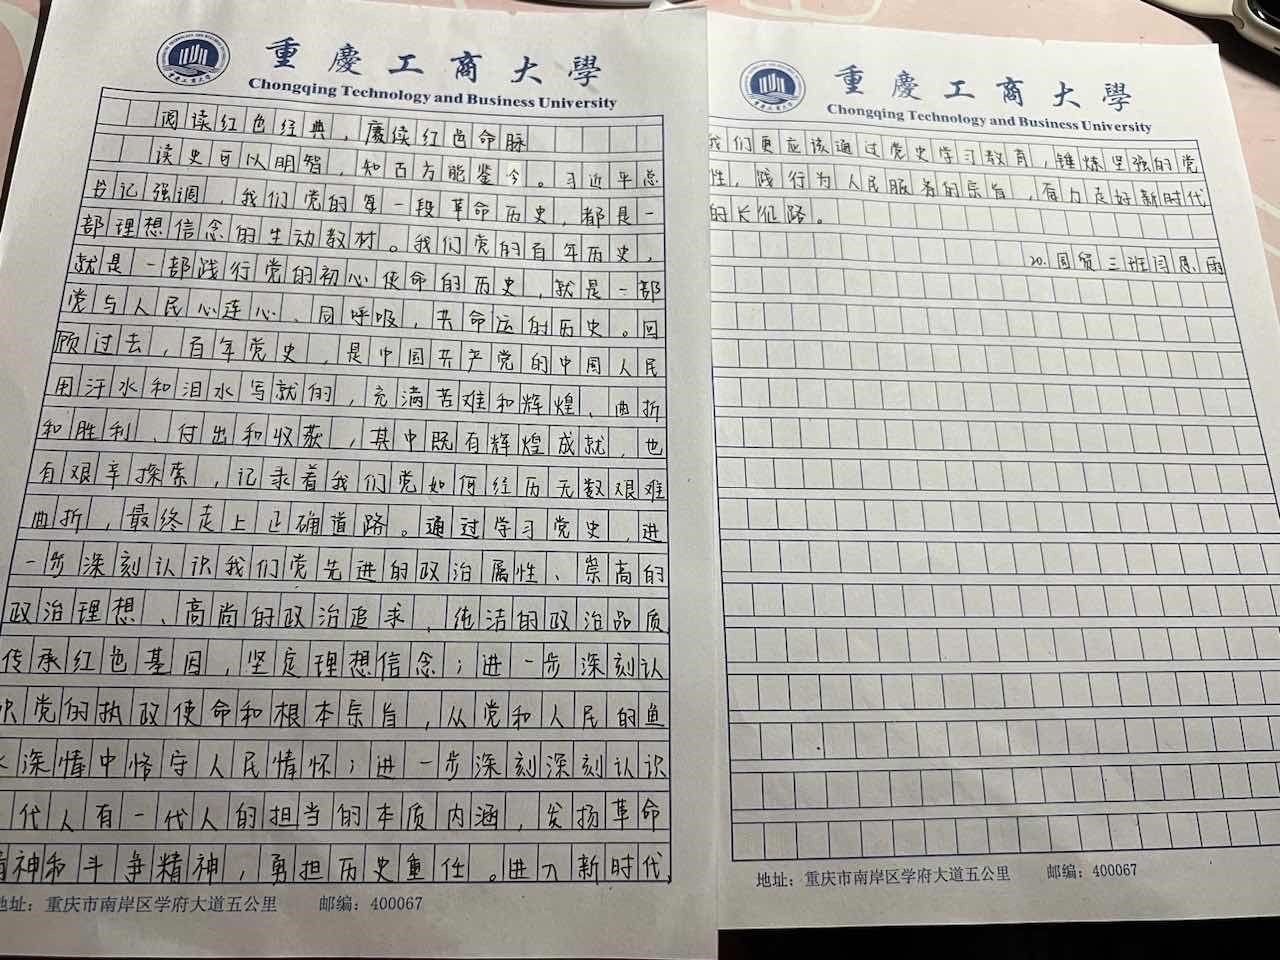 重慶工商大學
Chongqing Technology and Business University
阅读红色经典，赓续红色命脉
读史可以明智，知古方能鉴今。习近平总
书记强调，我们党的每一段革命历史，都是一
部理想信念的生动教材。我们党的百年历史，
就是一部践行党的初心使命的历史，就是一部
党与人民心连心、同呼吸，共命运的历史。回
顾过去，百年党史，是中国共产党的中国人民
用汗水和泪水写就的，充满苦难和辉煌、曲折
和胜利、付出和收获，其中既有辉煌成就，也
有艰辛探索，记录着我们党如何经历无数艰难
曲折，最终走上正确道路。通过学习党史，进
一步深刻认识我们党先进的政治属性、崇高的
政治理想、高尚的政治追求、纯洁的政治品质
传承红色基因，坚定理想信念；进一步深刻认
识党的执政使命和根本宗旨，从党和人民的鱼
水深情中恪守人民情怀；进一步深刻深刻认识
一代人有一代人的担当的本质内涵，发扬革命
精神和斗争精神，勇担历史重任。进入新时代，
地址：重庆市南岸区学府大道五公里 邮编：400067
重慶工商大學
Chongqing Technology and Business University
我们更应该通过党史学习教育，锤炼坚强的党
性，践行为人民服务的宗旨，奋力走好新时代
的长征路。
20.国贸三班闫思雨
地址：重庆市南岸区学府大道五公里 邮编：400067